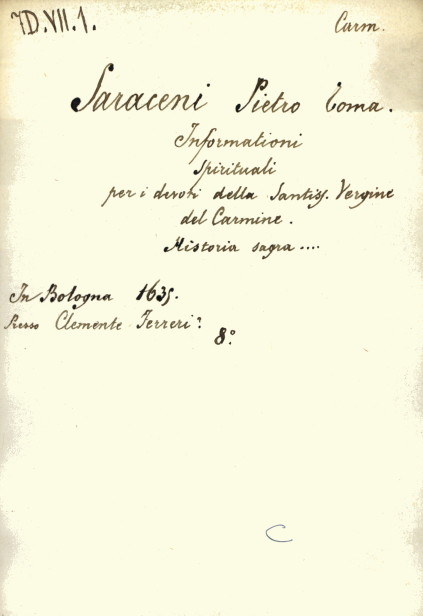 7D.VII.1. Carm.
Saraceni Pietro Toma.
Informationi
Spirituali
per i devoti della Santiss. Vergine
del Carmine.
Historia sagra ....
In Bologna 1635.
Presso Clemente Ferreri?
8°.
C